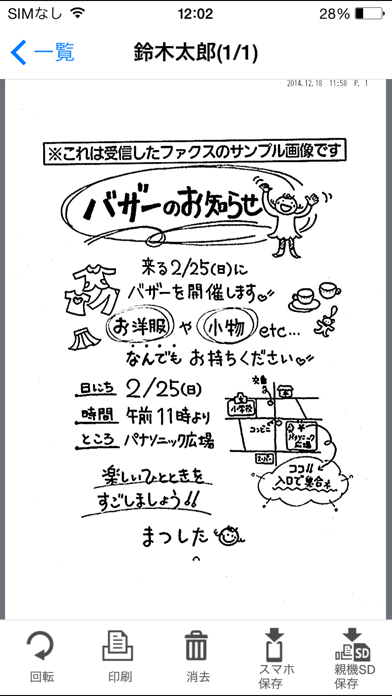 SIMなし 12:02 28%
一覧 鈴木太郎(1/1)
2014.12.18 11:58 P. 1
※これは受信したファクスのサンプル画像です
バザーのお知らせ
来る2/25(日)に
バザーを開催します
お洋服 や 小物 etc...
なんでも お持ちください
日にち 2/25(日)
時間 午前11時より
ところ パナソニック広場
交番
小学校
コンビニ
パナソニック
広場
スーパー
ココ!!
入口で集合
楽しいひとときを
すごしましょう!!
まつした
回転
印刷
消去
スマホ
保存
SD
親機SD
保存